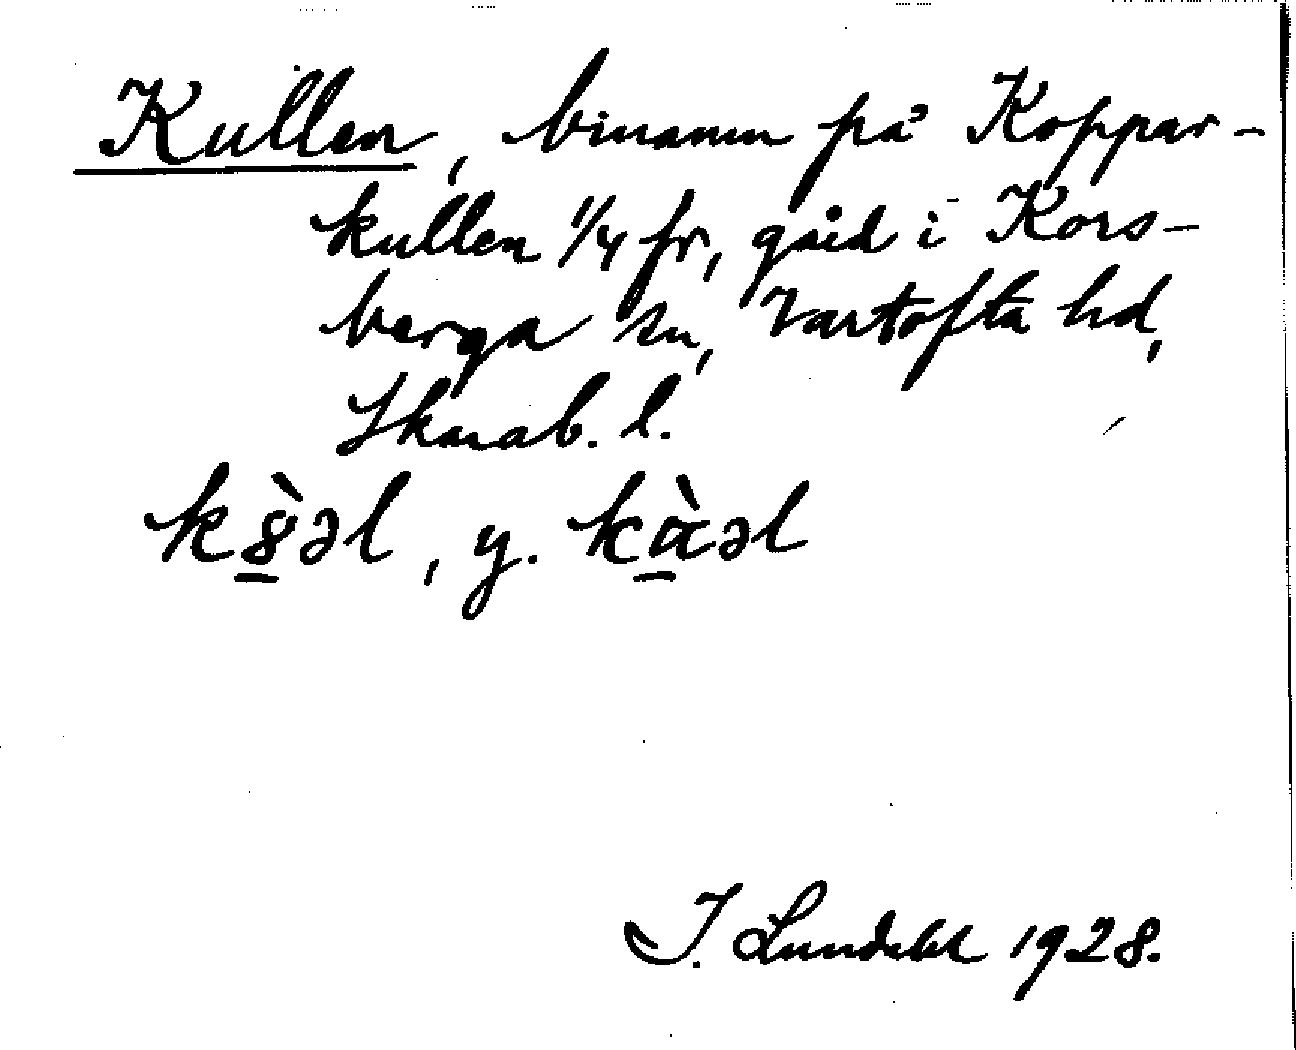 Kullen, binamn på Koppar-
kullen 1/4 fr, gård i Kors-
berga sn, Vartofta hd,
Skarab. l.
k8̱̀əl, y. kɑ̱̀əl
I. Lundahl 1928.